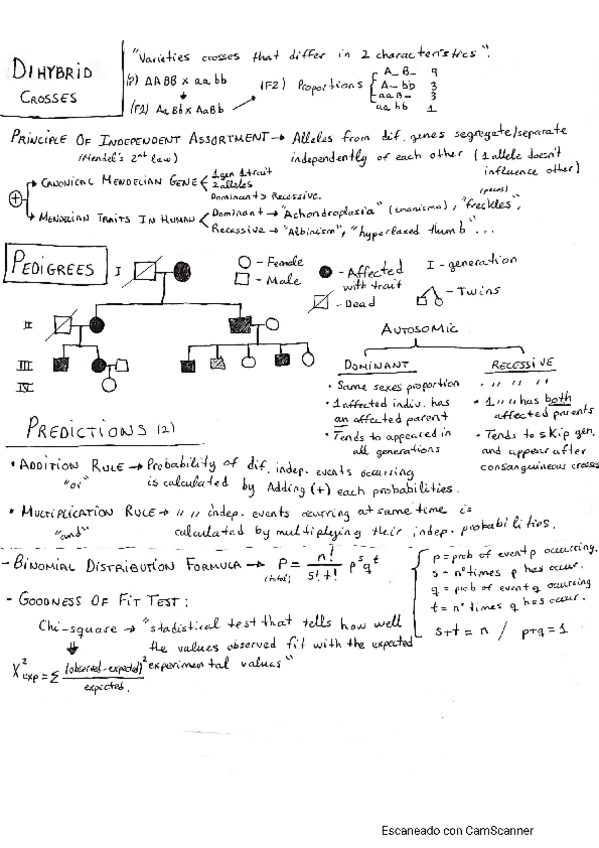 DIHYBRID CROSSES
"Varieties crosses that differ in 2 characteristics".
(P) AABB x aabb
(F1) AaBb x AaBb
(F2) Proportions
A_B_ 9
A_bb 3
aaB_ 3
aabb 1
PRINCIPLE OF INDEPENDENT ASSORTMENT → Alleles from dif. genes segregate/separate
(Mendel's 2nd law) independently of each other (1 allele doesn't
influence other)
+ CANONICAL MENDELIAN GENE
1 gen 1 trait
2 alleles
Dominant > Recessive.
MENDELIAN TRAITS IN HUMAN
(pecas)
Dominant → "Achondroplasia" (enanismo), "freckles",
Recessive → "Albinism", "hyperlaxed thumb"...
PEDIGREES
I
II
III
IV
- Female
- Male
- Affected with trait
- Dead
I - generation
- Twins
AUTOSOMIC
DOMINANT
• Same sexes proportion
• 1 affected indiv. has
an affected parent
• Tends to appeared in
all generations
RECESSIVE
• " " " "
• 1 " " has both
affected parents
• Tends to skip gen.
and appear after
consanguineous crosses
PREDICTIONS (2)
• ADDITION RULE → Probability of dif. indep. events occurring
"or" is calculated by Adding (+) each probabilities.
• MULTIPLICATION RULE → " " indep. events ocurring at same time is
"and" calculated by multiplying their indep. probabilities.
- BINOMIAL DISTRIBUTION FORMULA → P = n! / s! t! p^s q^t
(total)
p = prob of event p occurring.
s = nº times p has occur.
q = prob of event q occurring
t = nº times q has occur.
s+t = n / p+q = 1
- GOODNESS OF FIT TEST:
Chi-square → "stadistical test that tells how well
the values observed fit with the expected
experimental values"
X²exp = Σ (observed-expected)² / expected.
Escaneado con CamScanner